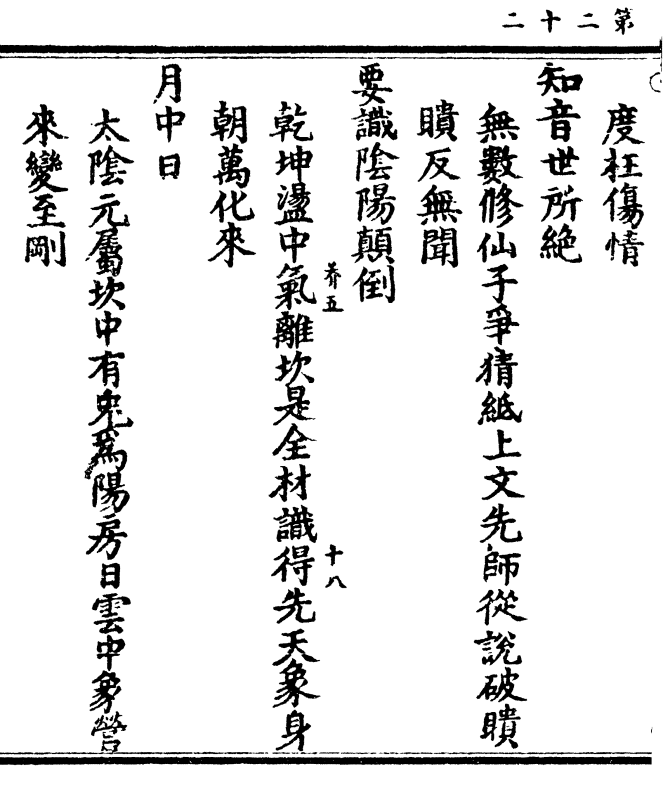 第二十二
度枉傷情
知音世所絶
無數修仙子爭猜紙上文先師從說破聵
聵反無聞
要識陰陽顛倒
乾坤盪中氣離坎是全材識得先天象身
朝萬化來
養五
十八
月中日
太陰元屬坎中有兔爲陽房日雲中象營
來變至剛